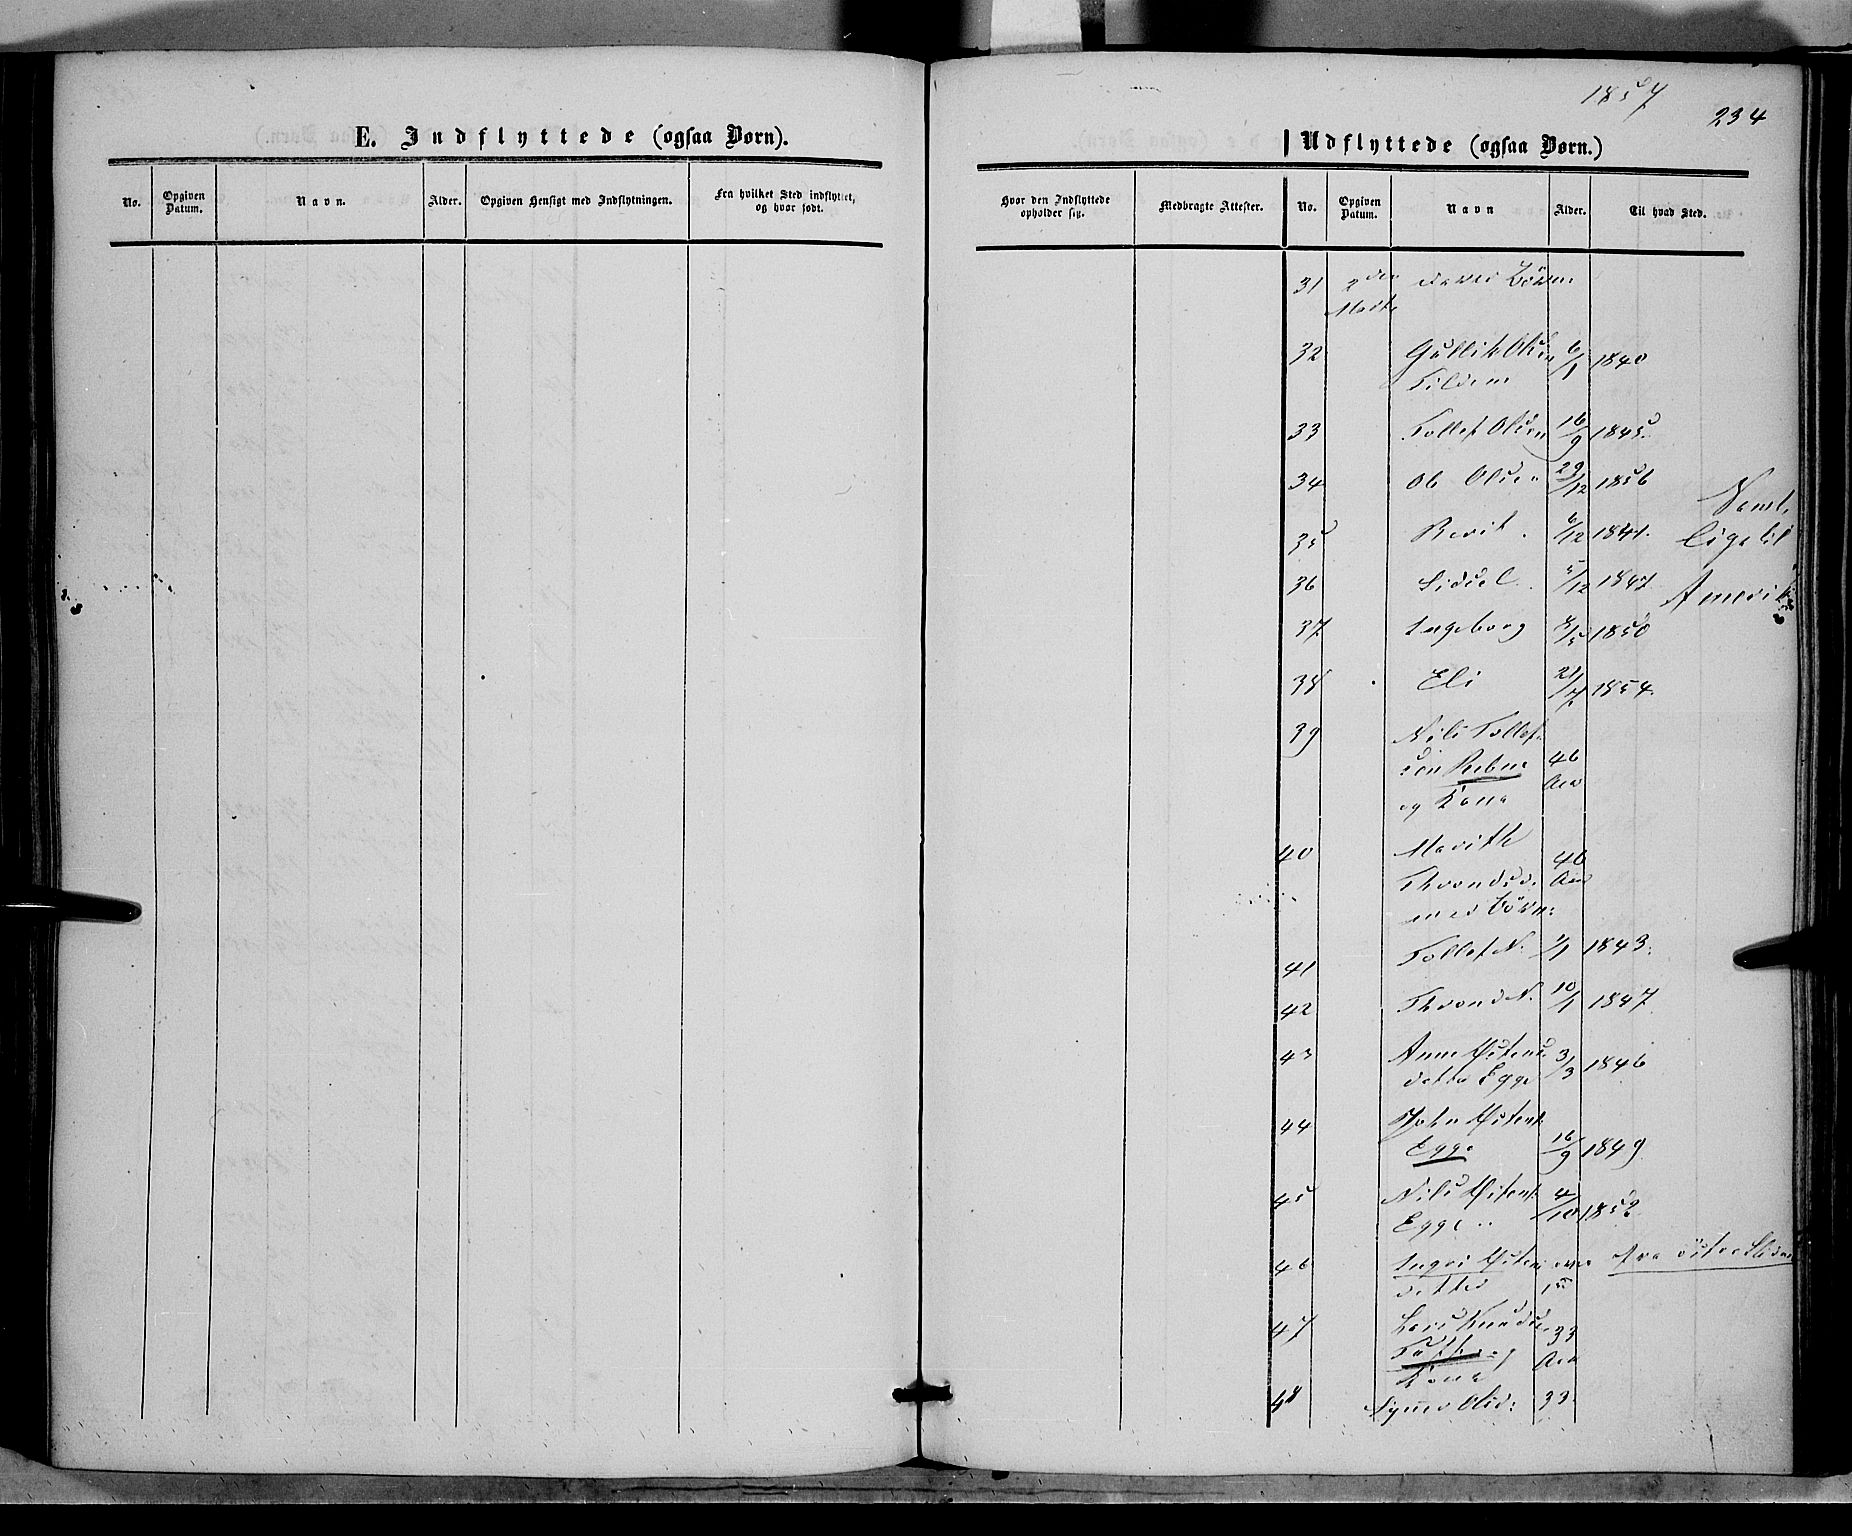 1857
234
E. Indflyttede (ogsaa Børn).
No.
Opgiven Datum.
Navn.
Alder.
Opgiven Hensigt med Indflytningen.
Fra hvilket Sted indflyttet, og hvor født.
Udflyttede (ogsaa Børn.)
Hvor den Indflyttede opholder sig.
Medbragte Attester.
No.
Opgiven Datum.
Navn
Alder.
Til hvad Sted.
31 2den Børn
32 Gullik Olsen 6/1 1840
33 Tollef Olsen 16/9 1845.
34 Ob Olsen 29/12 1856
Saml.
35 Berit. 6/12 1841.
lige til
36 Sidsel. 5/12 1847
Amerika
37 Ingeborg 1850
38 Eli 1854.
39 Nils Tollef-
sen Rebne 46
og Kona Aar
40 Marith 46
Throndsd. Aar
med Börn:
41 Tollef N. 1/1 1843.
42 Thrond N. 10/1 1847
43 Anne Østens 3/3 1846
datter Egge
44 John Østens.
Egge 16/9 1849
45 Nils Østens. 4/10 1852
Egge
46 Ingri Østens fra östre Slidre
datter
47 Lars Knuds. 33
Aar
Kona
48 Olsd: 33.